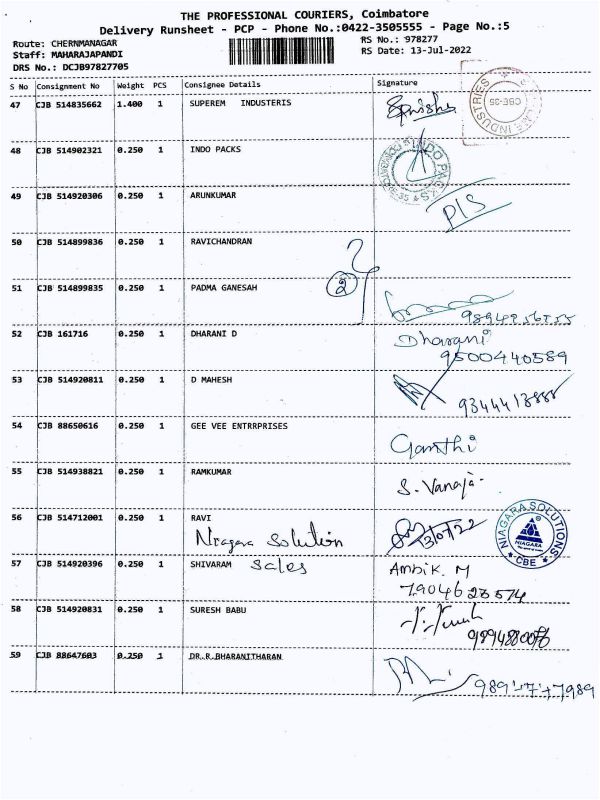 THE PROFESSIONAL COURIERS, Coimbatore
Delivery Runsheet - PCP - Phone No.:0422-3505555 - Page No.:5
Route: CHERNMANAGAR RS No.: 978277
Staff: MAHARAJAPANDI RS Date: 13-Jul-2022
DRS No.: DCJB97827705
S No Consignment No Weight PCS Consignee Details Signature
47 CJB 514835662 1.400 1 SUPEREM INDUSTERIS
48 CJB 514902321 0.250 1 INDO PACKS
49 CJB 514920306 0.250 1 ARUNKUMAR
P/S
50 CJB 514899836 0.250 1 RAVICHANDRAN
51 CJB 514899835 0.250 1 PADMA GANESAH
2
52 CJB 161716 0.250 1 DHARANI D Dharani
9500440589
53 CJB 514920811 0.250 1 D MAHESH
54 CJB 88650616 0.250 1 GEE VEE ENTRRPRISES
Gamthi
55 CJB 514938821 0.250 1 RAMKUMAR
S. Vanaja
56 CJB 514712001 0.250 1 RAVI
Niagara Solution 13/07/22
NIAGARA SOLUTIONS
NIAGARA
CBE
57 CJB 514920396 0.250 1 SHIVARAM Sales Ambik. M
58 CJB 514920831 0.250 1 SURESH BABU
59 CJB 88647603 0.250 1 DR.R.BHARANITHARAN